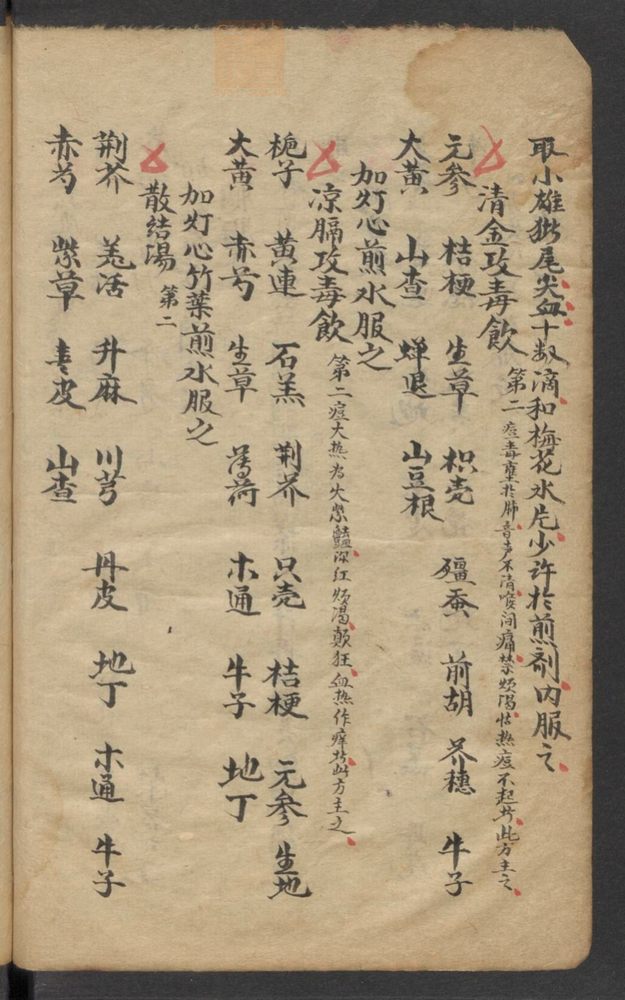 取小雄猪尾尖血十数滴和梅花水片少许於煎剂内服之
清金攻毒飲 第二 痘毒壅於肺音声不清喉间痛禁烦渴怯热痘不起者此方主之
元参 桔梗 生草 枳壳 殭蚕 前胡 芥穗 牛子
大黄 山查 蝉退 山豆根
加灯心煎水服之
凉膈攻毒飲 第二 痘大热为火深红烦渴颠狂血热作痒者此方主之
栀子 黄連 石羔 荆芥 只壳 桔梗 元参 生地
大黄 赤芍 生草 薄荷 木通 牛子 地丁
加灯心竹葉煎水服之
散結湯 第二
荆芥 羌活 升麻 川芎 丹皮 地丁 木通 牛子
赤芍 紫草 青皮 山查